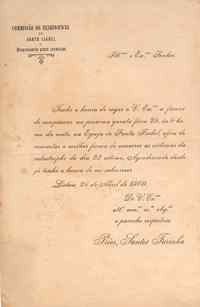 COMMISSÃO DE RESIDENCIAS
DE
SANTA ISABEL
Ill.mo e Ex.mo Senhor
Tenho a honra de rogar a V. Ex.cia a fineza
de comparecer na proxima quarta feira 28, ás 8 horas
da noite, na Egreja de Santa Isabel, afim de
concertar a melhor forma de soccorrer as victimas da
catastrophe do dia 23 ultimo. Agradecendo desde
já tenho a honra de me subscrever
Lisboa, 26 de Abril de 1909.
De V. Ex.cia
o parocho
Santos Farinha